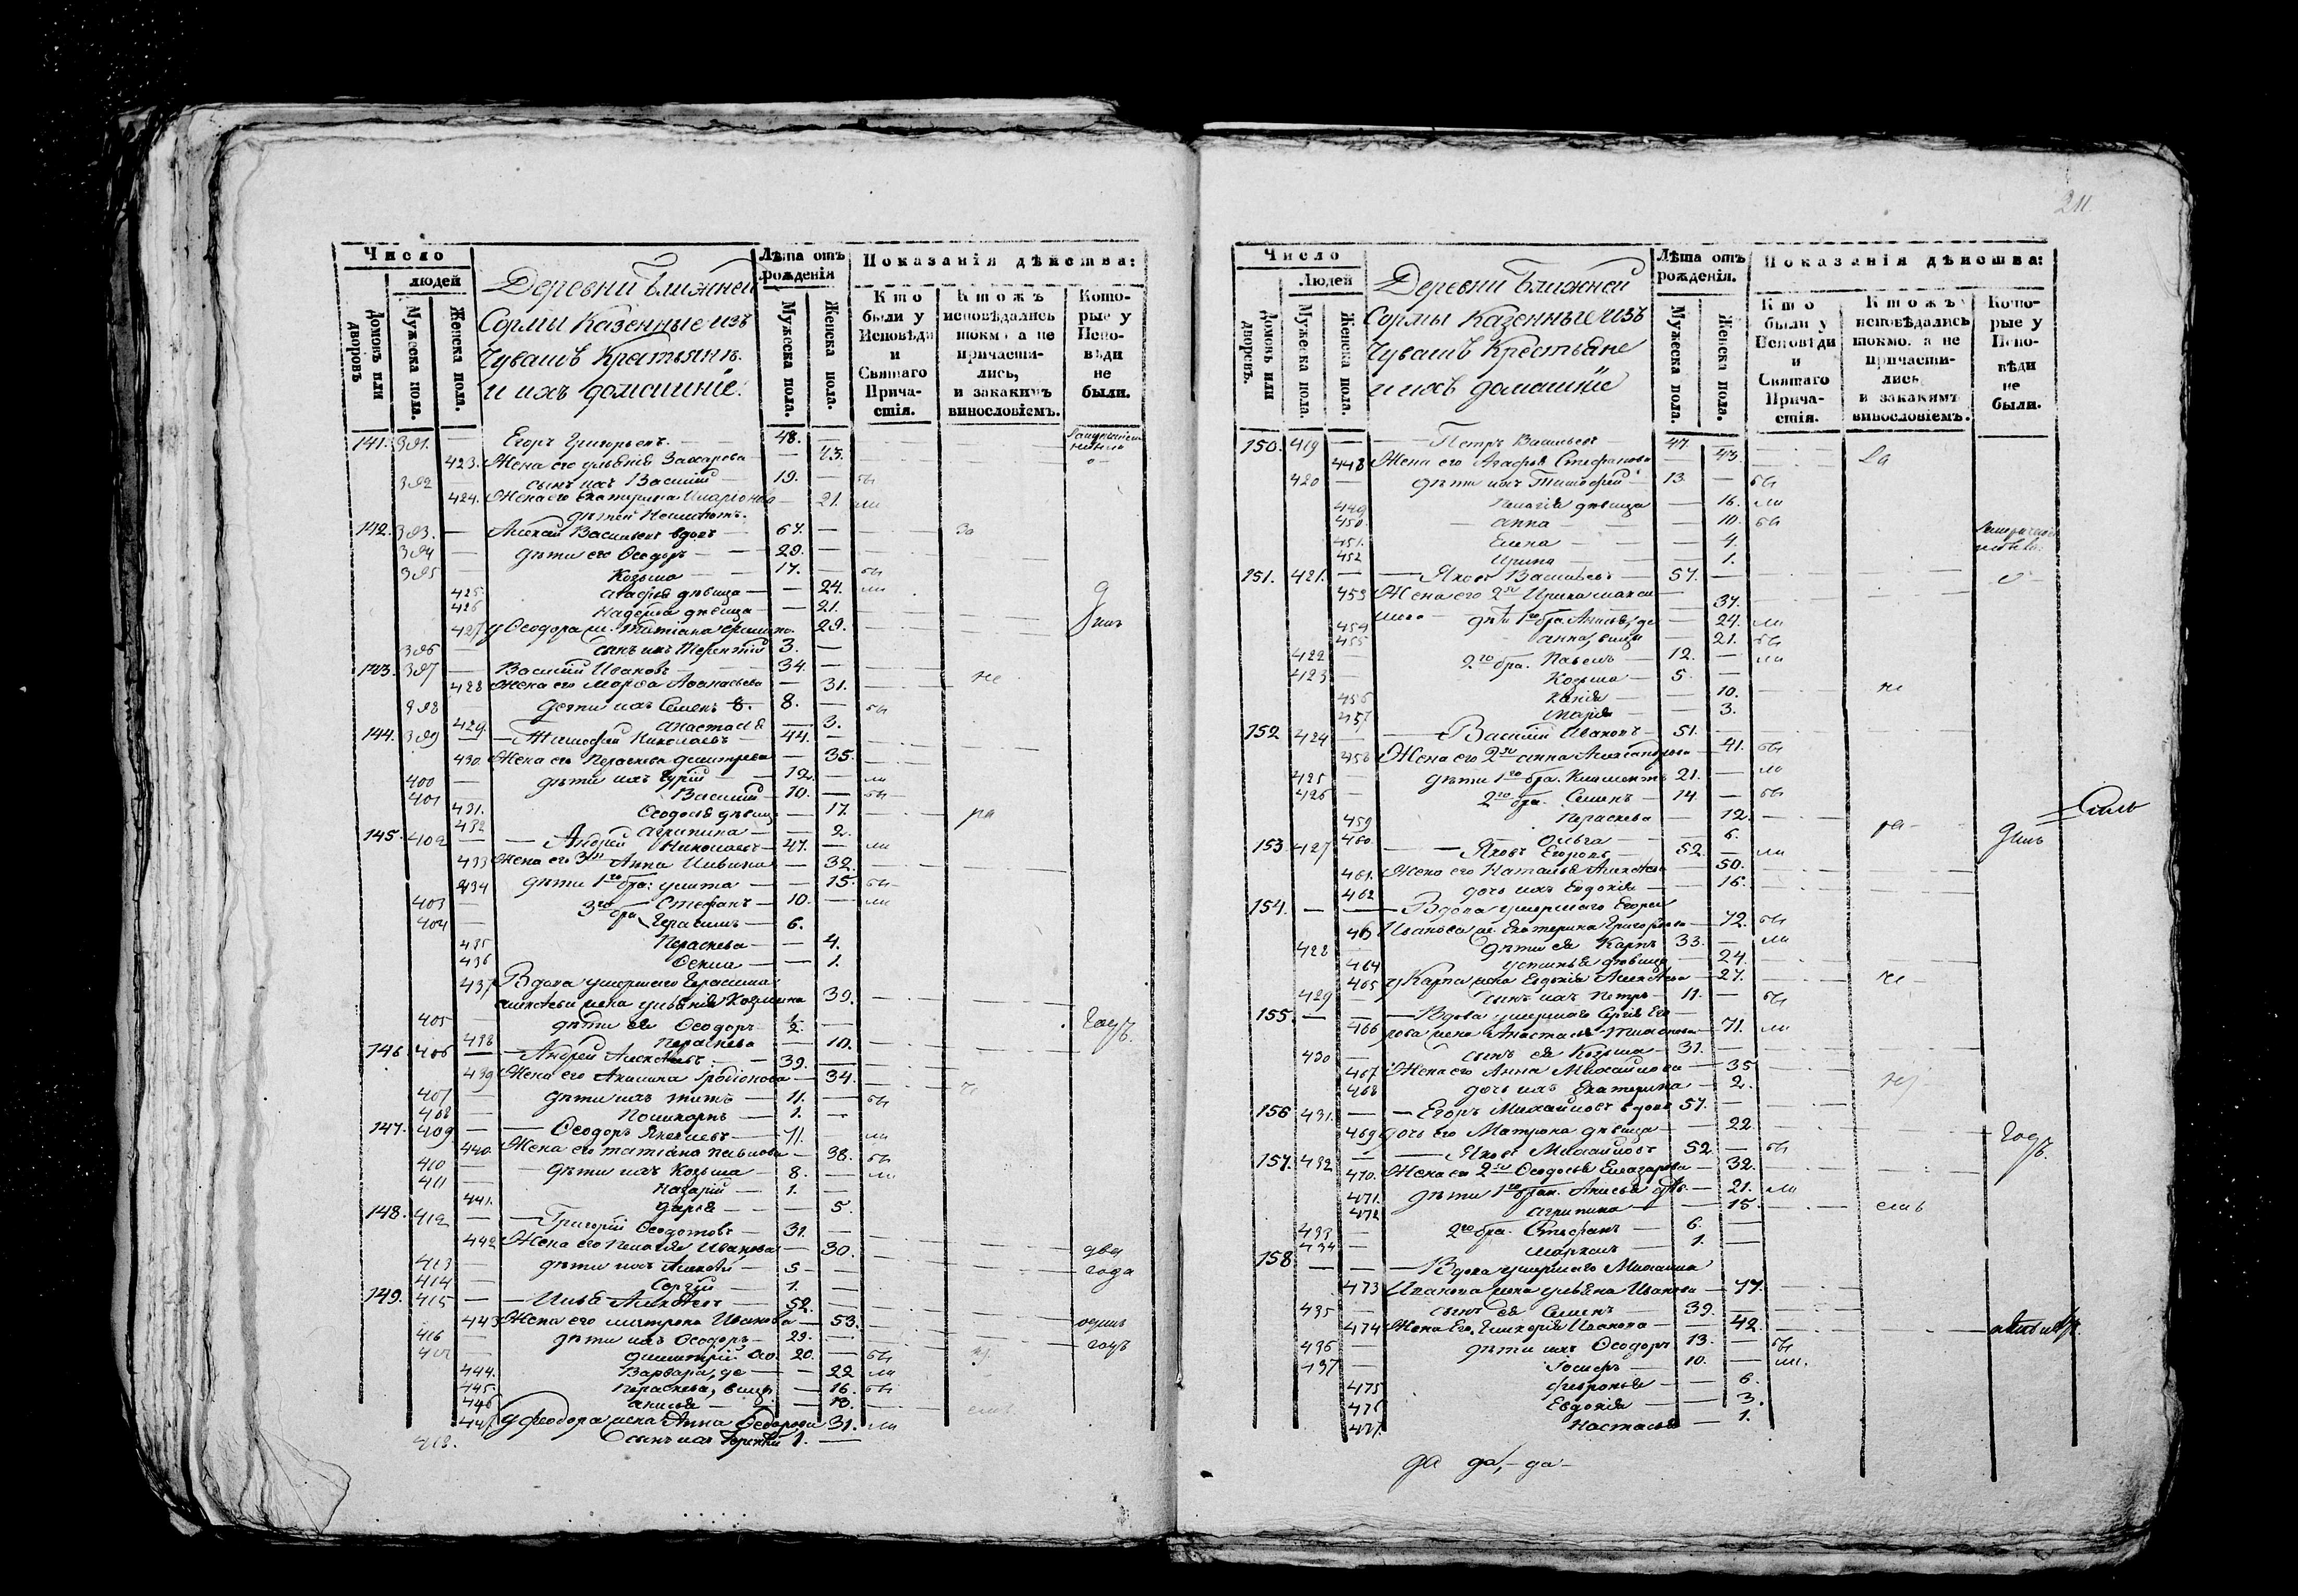 Число
людей
Домовъ или дворовъ
Мужеска пола.
Женска пола.
Деревни Ближней
Сормы Казенные изъ
Чувашъ Крестьянъ.
и ихъ домашніе.
Лѣта отъ рожденія
Мужеска пола.
Женска пола.
Показанія дѣйства:
Кто были у Исповѣди и Святаго Причастія.
Ктожъ исповѣдались токмо а не причастились, и закакимъ винословіемъ.
Которые у Исповѣди не были.
141. 391. — Егоръ Григорьевъ 48.
423. Жена его Ульянія Захарова — 43.
392 — сынъ ихъ Василій — 19. —
424. Жена его Екатерина Иларіонова — 21.
дѣтей Неимѣютъ.
142. 393. — Алексѣй Васильевъ вдовъ — 67. —
394 — дѣти его Ѳеодоръ — 29. —
395 — Козьма — 17. —
425. Агафья дѣвица — 24.
426 Надежда дѣвица — 21.
427 у Ѳеодора же. Татіана — 29.
396 — сынъ ихъ Терентій 3. —
143. 397 — Василій Ивановъ 34. —
428 Жена его Марѳа Аѳанасьева — 31.
398 — дѣти ихъ Семенъ 8. —
429. Анастасія — 3.
144. 399 — Тимоѳей Николаевъ — 44. —
430. Жена его Параскева Димитріева — 35.
400 — дѣти ихъ Гурій — 12. —
401 — Василій — 10. —
431. Ѳеодосія дѣвица — 17.
432 Агрипина — 2.
145. 402 — Андрей Николаевъ — 47. —
433 Жена его 3я Анна — 32.
434 дѣти 1го бра: Улита — 15.
403 — 3го бра Стефанъ — 10. —
404 — Герасимъ — 6.
435 Параскева — 4.
436 Ѳекла — 1.
437 Вдова умершаго Герасима
Алексѣева жена Ульянія Козмина 39.
405 — дѣти ея Ѳеодоръ 2. —
438 Параскева — 10.
146. 406 — Андрей Алексѣевъ — 39. —
439 Жена его Акилина Родіонова — 34.
407 — дѣти ихъ Титъ — 11. —
408 — Поликарпъ — 1. —
147. 409 — Ѳеодоръ Яковлевъ — 71.
440. Жена его Татіана Павлова — 38.
410 — дѣти ихъ Козьма — 8. —
411 — Назарій — 1. —
441. Дарья — 5.
148. 412 — Григорій Ѳеодотовъ — 31. —
442 Жена его Пелагія Иванова — 30.
два
413 — дѣти ихъ Алексѣй — 5 —
года
414 — Сергій — 1. —
149. 415 — Илья Алексѣевъ — 52. —
443 Жена его Матрона Иванова — 53.
одинъ
416 — дѣти ихъ Ѳеодоръ — 29. —
годъ
417 — Димитрій 20. —
444. Варвара, де — 22
445. Параскева, вицы — 16.
446 Анисья — 13.
447 у Феодора жена Анна Ѳеодорова 31.
418. сынъ ихъ 1. —
211.
Число
Людей
Домовъ или дворовъ.
Мужеска пола.
Женска пола.
Деревни Ближней
Сормы Казенные изъ
Чувашъ Крестьяне
и ихъ домашніе
Лѣта отъ рожденія.
Мужеска пола.
Женска пола.
Показанія дѣйства:
Кто были у Исповѣди и Святаго Причастія.
Ктожъ исповѣдались токмо. а не причастились и закакимъ винословіемъ.
Которые у Исповѣди не были.
150. 419 — Петръ Васильевъ 47. —
448 Жена его Агафья Стефанова 43.
420 — дѣти ихъ Тимофей 13. —
449 Пелагія дѣвица — 16.
450. Анна — 10.
451. Елена — 4.
452 Ирина — 1.
151. 421. — Яковъ Васильевъ 57. —
453 Жена его 2я Ирина Макси
мова — 37.
454 дѣти 1го бра. Анисья, де — 24.
455 Анна, вицы — 21.
422 2го бра. Павелъ — 12. —
423 — Козьма — 5. —
456 Ксенія — 10.
457 Марія — 3.
152 424 — Василій Ивановъ — 51. —
458 Жена его 2я Анна Александрова — 41.
425 дѣти 1го бра. Климентъ 21. —
426 — 2го бра. Семенъ — 14. —
459 Параскева — 12.
460. Ольга — 6.
153 427 — Яковъ Егоровъ — 52. —
461. Жена его Наталья Алексѣева 50.
462 дочь ихъ Евдокія — 16.
154. — — Вдова умершаго Егора
463 Иванова же. Екатерина Григорьева — 72.
428 — дѣти ея Карпъ 33. —
464 Устинья дѣвица — 24.
465 у Карпа жена Евдокія Алексѣева — 27.
429 — сынъ ихъ Петръ — 11. —
155. — — Вдова умершаго Сергія Его
466 рова жена Анастасія — 71.
430 — сынъ ея Козьма — 31. —
467 Жена его Анна Михайлова — 35
468 дочь ихъ Екатерина — 2.
156 431. — Егоръ Михайловъ вдовъ 57. —
469 дочь его Матрона дѣвица — 22.
годъ.
157. 432 — Яковъ Михайловъ 52. —
470. Жена его 2я Ѳеодосья Елеазарова — 32.
471. дѣти 1го брак. Анисья дѣв. — 21.
472 Агрипина — 15.
433 — 2го бра. Стефанъ — 6. —
434 — Маркелъ — 1. —
158 — — Вдова умершаго Михаила
473 Иванова жена Ульяна Иванова — 77.
435 — сынъ ея Семенъ — 39. —
474 Жена Его Гликерія Иванова — 42.
436 — дѣти ихъ Ѳеодоръ 13. —
437 — 10. —
475 Февронья — 6.
476 Евдокія — 3.
477. Настасья — 1.
да да, — да —